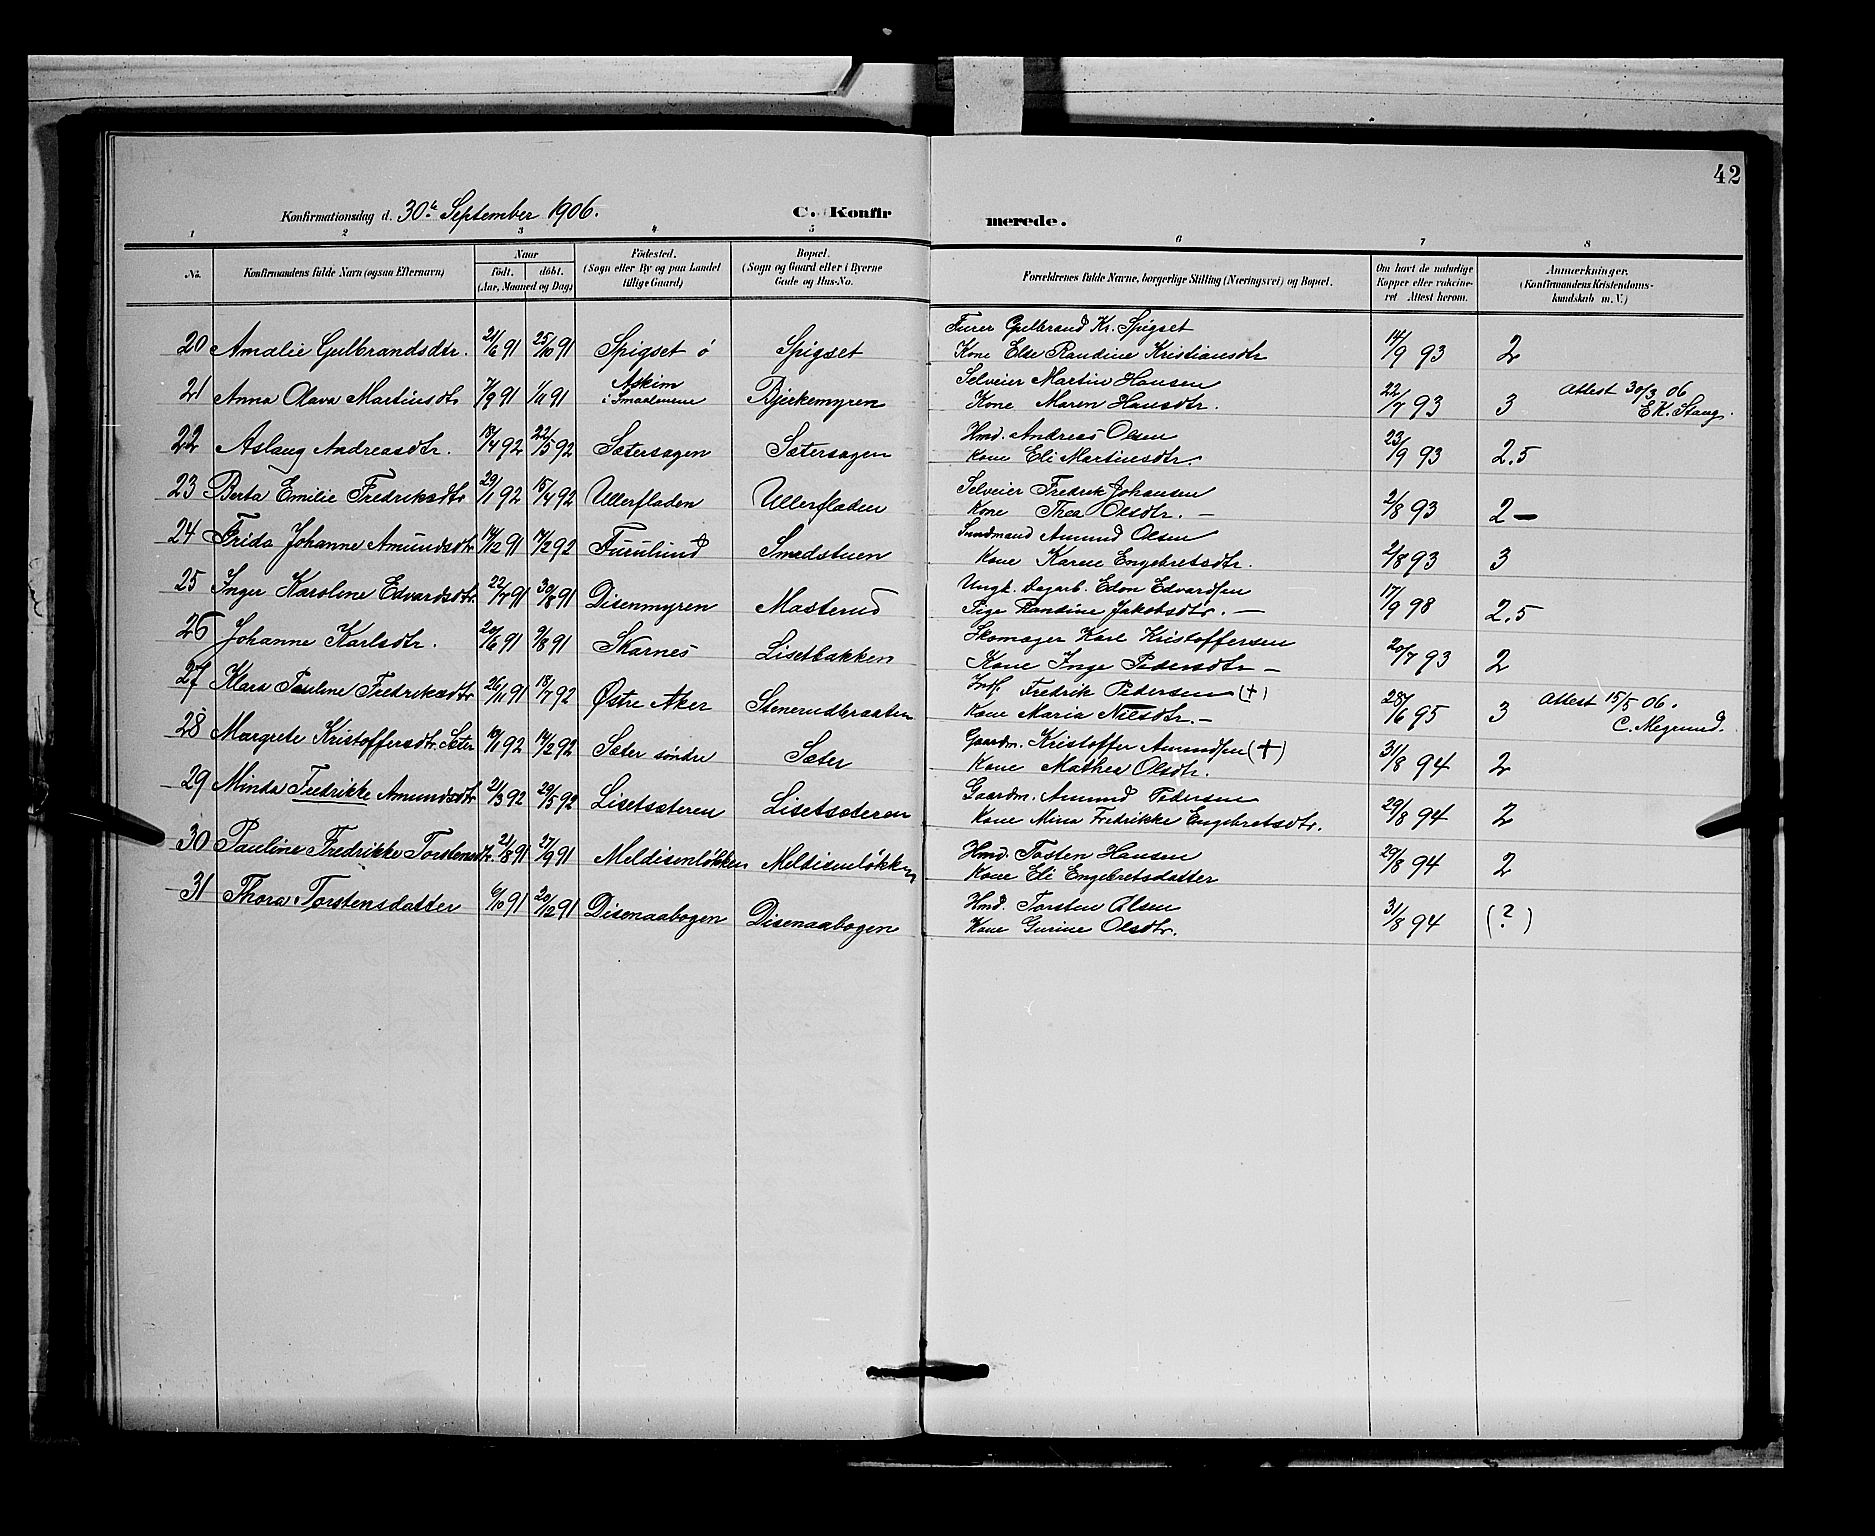 42
Konfirmationsdag d. 30te September 1906.
C. Konfirmerede.
1 2 3 4 5 6 7 8
No.
Konfirmandens fulde Navn (ogsaa Efternavn)
Naar
født. døbt.
(Aar, Maaned og Dag)
Födested.
(Sogn eller By og paa Landet
tillige Gaard)
Bopæl.
(Sogn og Gaard eller i Byerne
Gade og Hus-No.
Forældrenes fulde Navne, borgerlige Stilling (Næringsvei) og Bopæl.
Om havt de naturlige
Kopper eller vakcine-
ret Attest herom.
Anmærkninger.
(Konfirmandens Kristendoms-
kundskab m. V.)
Gulbrand Kr. Spigset
20 Amalie Gulbrandsdtr. 21/6 91 25/10 91 Spigset ö Spigset Kone Else Randine Kristiansdtr 14/9 93 2
Askim Selveier Martin Hansen Attest 30/3 06
21 Anna Olava Martinsdtr 7/9 91 1/11 91 i Smaalenene Bjerkemyren Kone Maren Hansdtr. 22/7 93 3 E K. Stang.
Hmd. Andreas Olsen
22 Aslaug Andreasdtr. 13/4 92 22/5 92 Sætersagen Sætersagen Kone Eli Martinsdtr. 23/9 93 2.5
Selveier Fredrik Johansen
23 Berta Emilie Fredriksdtr 29/1 92 15/4 92 Ullerfladen Ullerfladen Kone Thea Olsdtr. – 2/8 93 2 –
Amund Olsen
24 Frida Johanne Amundsdtr 14/12 91 14/2 92 Furulund Smedstuen Kone Karen Engebretsdtr. 2/8 93 3
Ungk. Dagarb. Edvardsen
25 Inger Karoline Edvardsdtr. 22/7 91 30/8 91 Disenmyren Masterud Pige Randine Jakobsdtr. – 17/9 98 2.5
Skomager Karl Kristoffersen
26 Johanne Karlsdtr. 20/6 91 9/8 91 Skarnes Lisetbakken Kone Inge Pedersdtr – 20/7 93 2
Fredrik Pedersen (+) Attest 15/5 06.
27 Klara Pauline Fredriksdtr 26/11 91 18/7 92 Østre Aker Stenerudbraaten Kone Maria Nilsdtr. – 28/6 95 3 C.
Gaardm. Kristoffer Amundsen (+)
28 Margrete Kristoffersdtr. Sæter 10/1 92 14/2 92 Sæter söndre Sæter Kone Mathea Olsdtr. 31/8 94 2
Gaardm. Amund Pedersen
29 Minda Fredrikke Amundsdtr 21/3 92 29/5 92 Lisetsæteren Lisetsæteren Kone Mina Fredrikke Engebretsdtr. 29/8 94 2
Hmd. Tosten Hansen
30 Pauline Fredrikke Torstensdtr. 2/8 91 27/9 91 Meldisenløkken Meldisenløkken Kone Eli Engebretsdatter 29/8 94 2
Hmd. Torsten Olsen
31 Thora Torstensdatter 6/10 91 20/12 91 Disenaabogen Disenaabogen Kone Gurine Olsdtr. 31/8 94 (?)